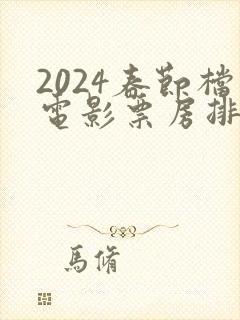 2024春節檔
電影票房排
馬脩